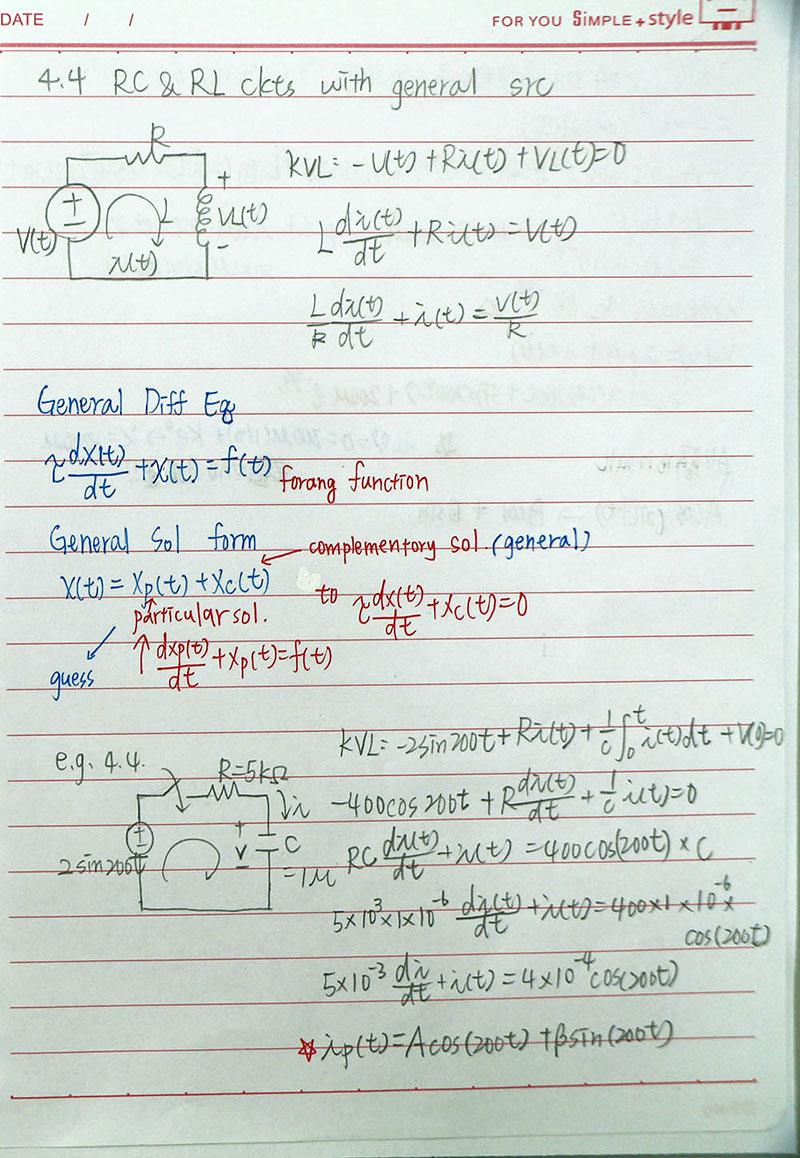 DATE / /
FOR YOU SIMPLE + style
4.4 RC & RL ckts with general src
R
KVL: -V(t) + Ri(t) + VL(t)=0
+
V(t)
L
VL(t)
-
i(t)
L di(t)/dt + Ri(t) = V(t)
L/R di(t)/dt + i(t) = V(t)/R
General Diff Eq
τ dX(t)/dt + X(t) = f(t) forang function
General Sol form
complementory sol. (general)
X(t) = Xp(t) + Xc(t)
to τ dx(t)/dt + Xc(t) = 0
particular sol.
dxp(t)/dt + Xp(t) = f(t)
guess
KVL: -2sin200t + Ri(t) + 1/C ∫₀ᵗ i(t)dt + V(0)=0
e.g. 4.4.
R=5kΩ
↓i
-400cos200t + R di(t)/dt + 1/C i(t)=0
2sin200t
+
V
-
C
=1μ
RC di(t)/dt + i(t) = 400cos(200t) × C
5×10³×1×10⁻⁶ di(t)/dt + i(t) = 400×1×10⁻⁶×
cos(200t)
5×10⁻³ di/dt + i(t) = 4×10⁻⁴cos(200t)
☆ ip(t) = Acos(200t) + βsin(200t)